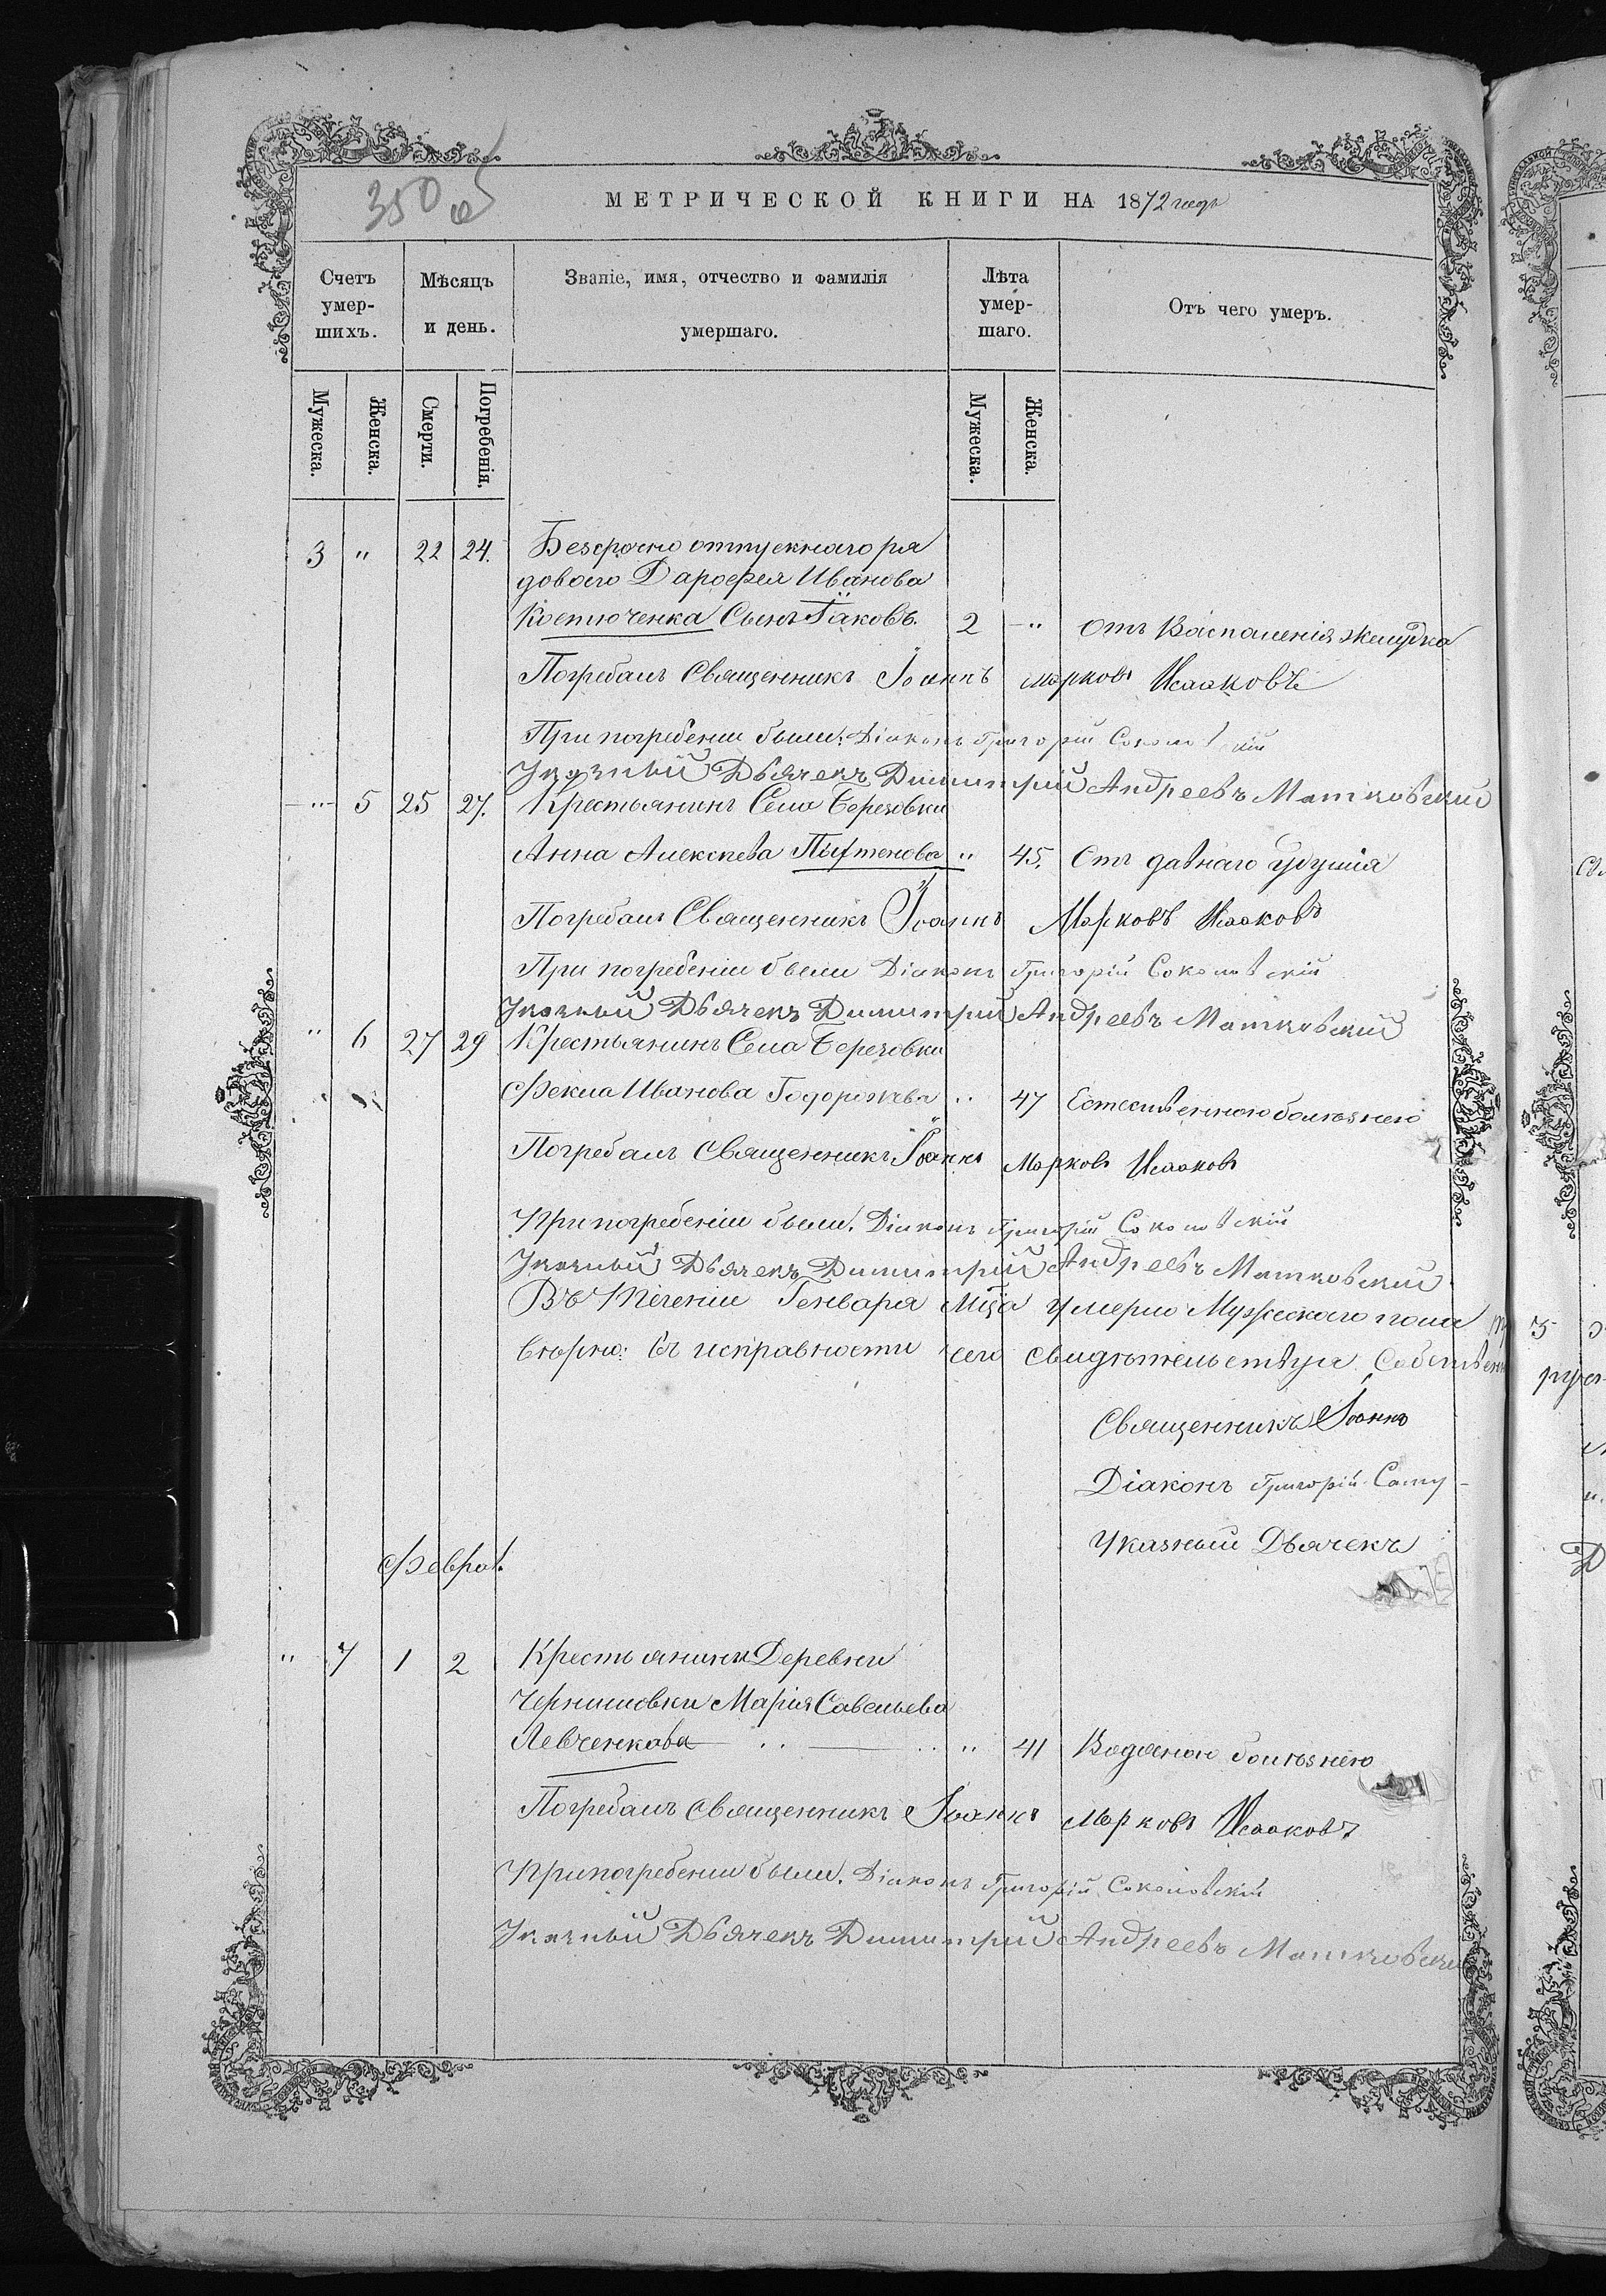 350 об
МЕТРИЧЕСКОЙ КНИГИ НА 1872 годъ
Счетъ умер-шихъ. Мѣсяцъ и день. Званіе, имя, отчество и фамилія умершаго. Лѣта умер-шаго. Отъ чего умеръ.
Мужеска. Женска. Смерти. Погребенія. Мужеска. Женска.
3 " 22 24. Безсрочно отпускнаго ря
доваго Дарофея Иванова
Костюченка Сынъ Іаковъ. 2 " отъ Васпаленія желудка
Погребалъ Священникъ Іоаннъ Марковъ Исааковъ
При погребеніи были: Діаконъ Григорій Соколовскій
Указный Дьячекъ Димитрій Андреевъ Матковскій
" 5 25 27. Крестьянинъ Села Березовки
Анна Алексѣева Пыхтенова " 45. Отъ давнаго удушія
Погребалъ Священникъ Іоаннъ Марковъ Исааковъ
При погребеніи были Діаконъ Григорій Соколовскій
Указный Дьячекъ Димитрій Андреевъ Матковскій
" 6 27 29 Крестьянинъ Села Березовки
Фекла Иванова " 47 Естественною болѣзнею
Погребалъ Священникъ Іоаннъ Марковъ Исааковъ
При погребеніи были. Діаконъ Григорій Соколовскій
Указный Дьячекъ Димитрій Андреевъ Матковскій
Въ теченіи Генваря Мца умерло Мужескаго пола
вѣрно: въ исправности сего свидѣтельствуя
Священникъ Іоаннъ
Діаконъ Григорій
Указный Дьячекъ
Феврал.
" 7 1 2 Крестьянинъ Деревни
Чернишовки Марія Савельева
Левченкова " 41 Водяною болѣзнею
Погребалъ Священникъ Іоаннъ Марковъ Исааковъ
При погребеніи были. Діаконъ Григорій Соколовскій
Указный Дьячекъ Димитрій Андреевъ Матковскій